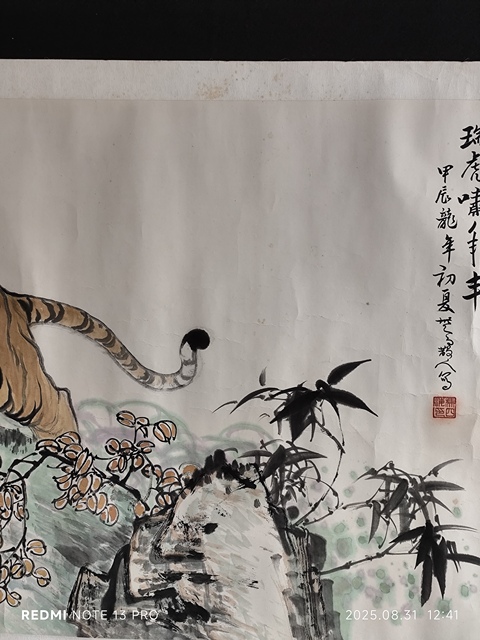 瑞虎啸年丰
甲辰龍年初夏
写
REDMI NOTE 13 PRO
2025.08.31 12:41